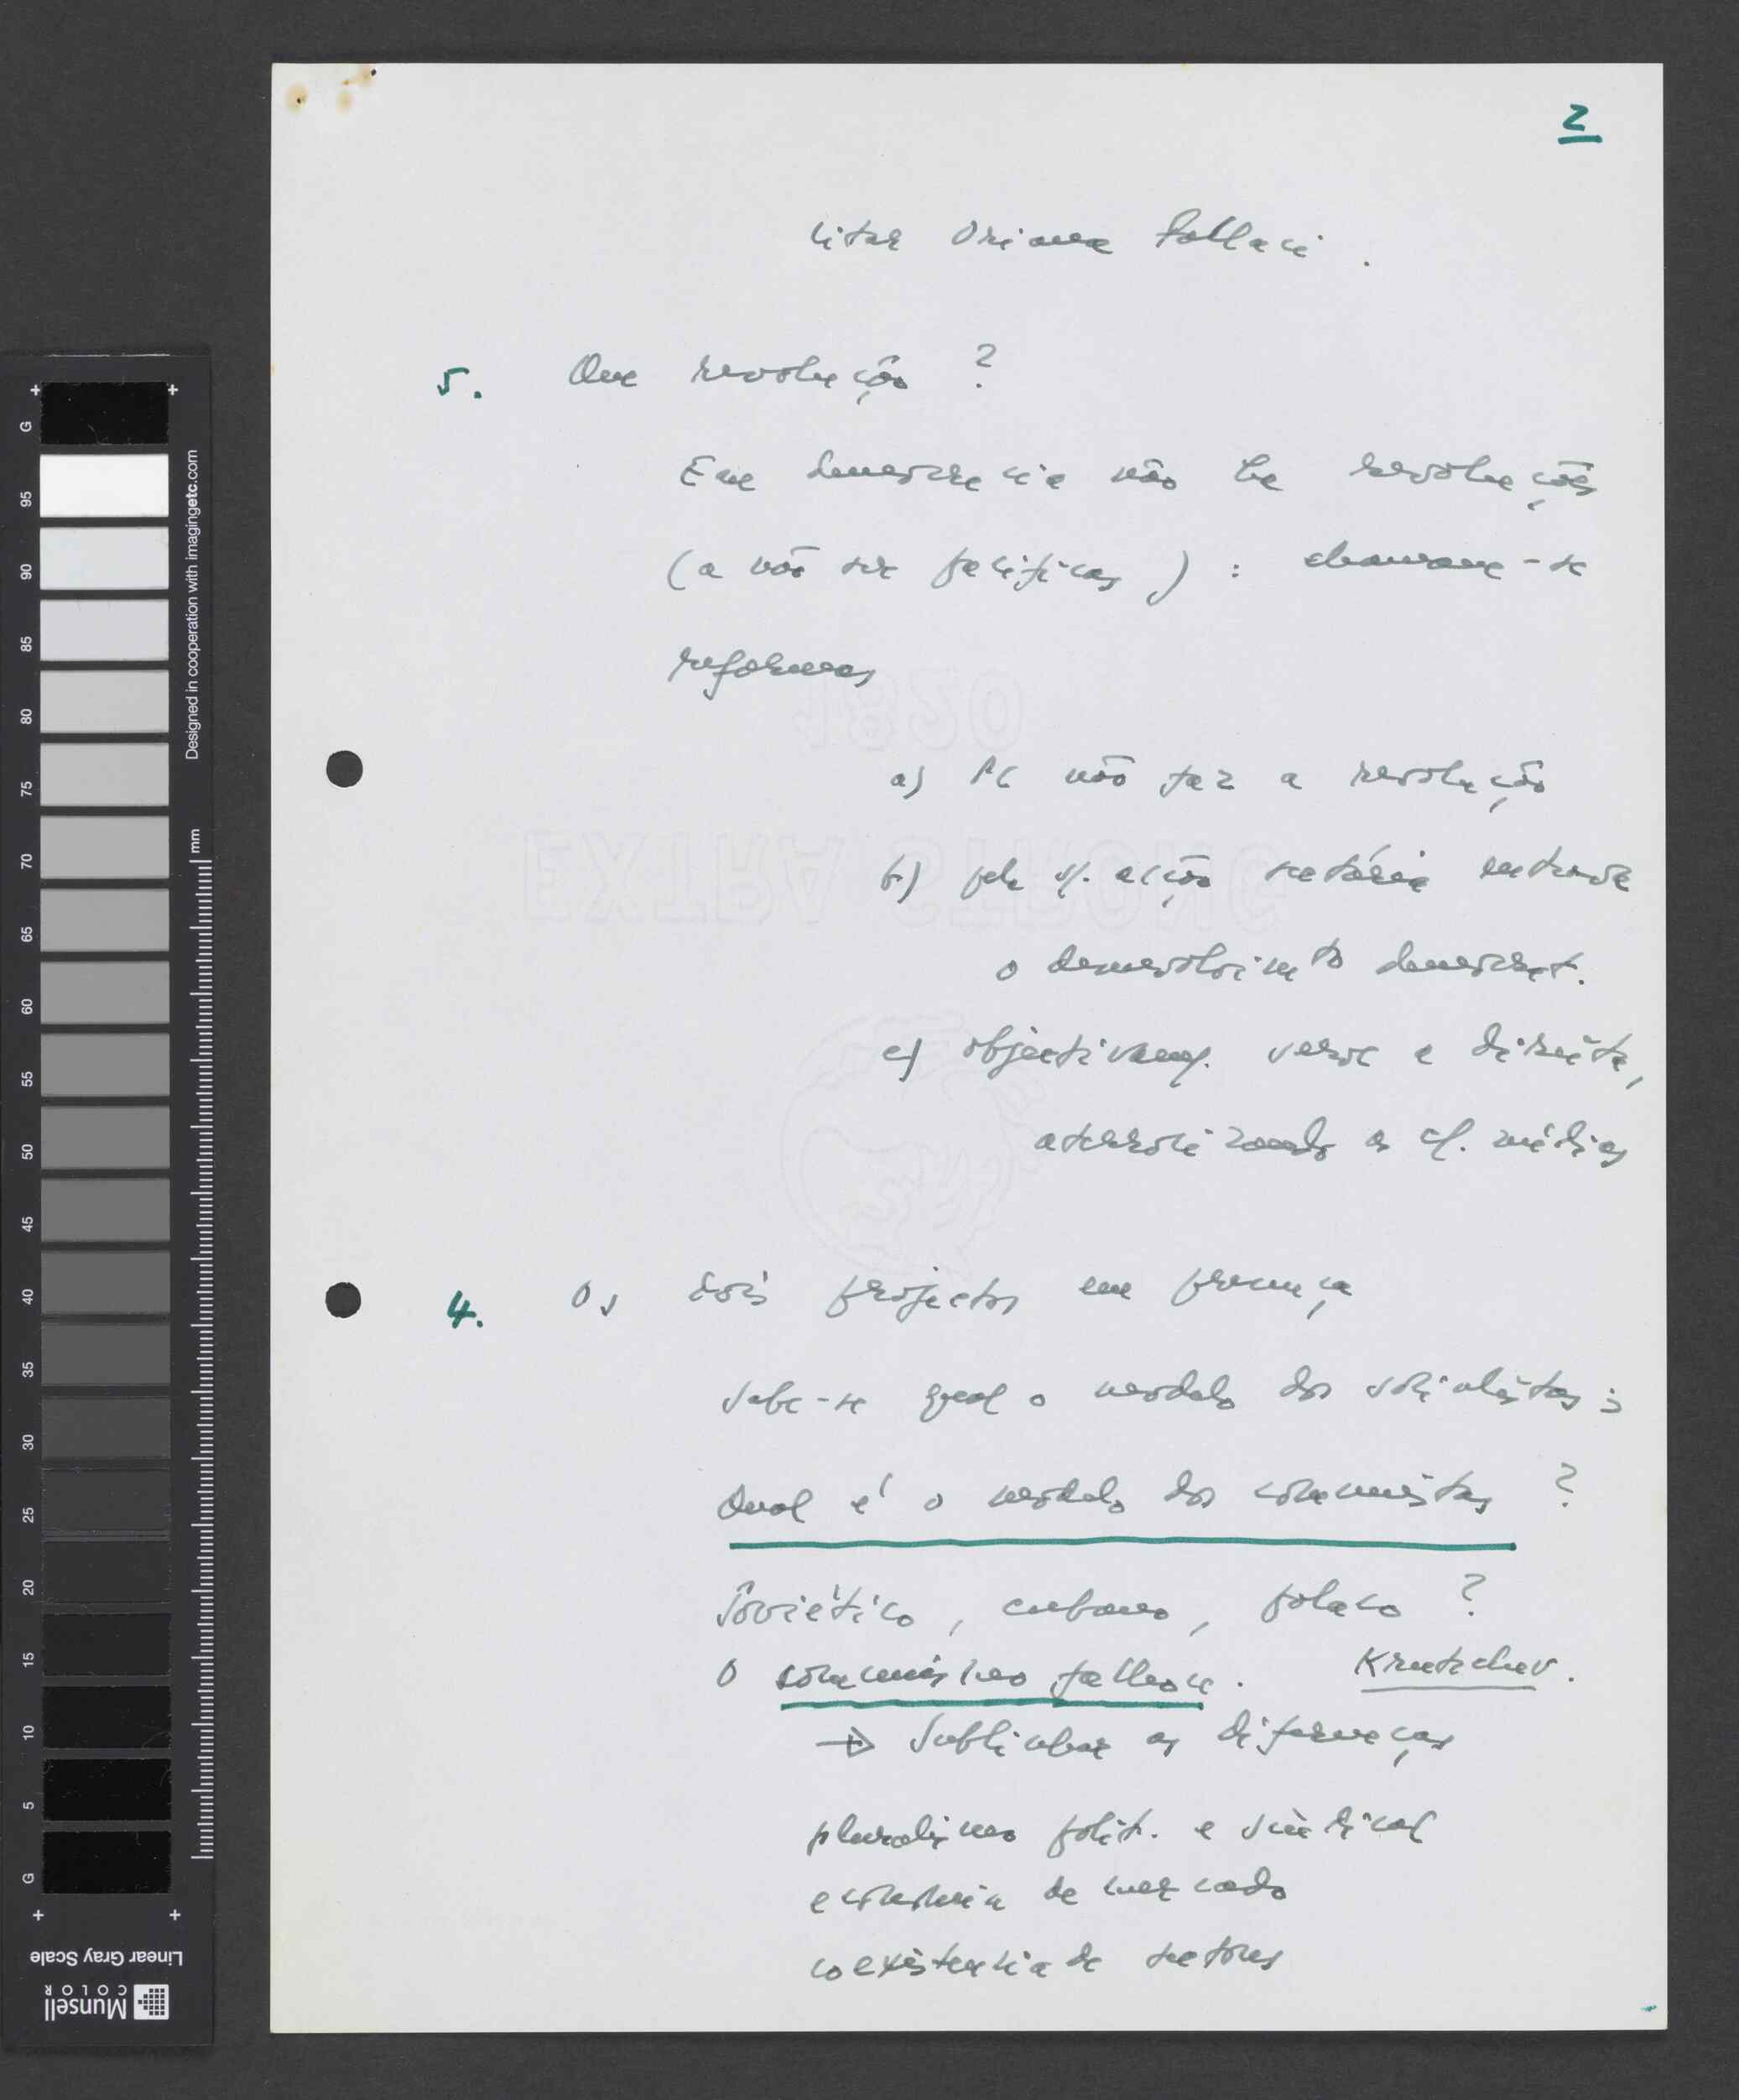 2
Citar Oriana Fallaci.
5. Que revolução ?
Em democracia não há revoluções
(a não ser pacíficas) : chamam-se
reformas
a) PC não faz a revolução
b) pela s/. acção sectária entrava
o desenvolvimto democrat.
c) objectivamt. serve a direita,
aterrorizando as cl. médias
4. Os dois projectos em presença
Sabe-se qual o modelo dos socialistas ;
Qual é o modelo dos comunistas ?
Soviético, cubano, polaco ?
O comunismo falhou. Krutchev.
→ Sublinhar as diferenças
pluralismo polit. e sindical
economia de mercado
coexistencia de sectores
1820
EXTRA STRONG
G
95
90
85
80
75
70
65
60
55
50
45
40
35
30
25
20
15
10
5
G
mm
Designed in cooperation with imagingetc.com
Linear Gray Scale
Munsell
COLOR